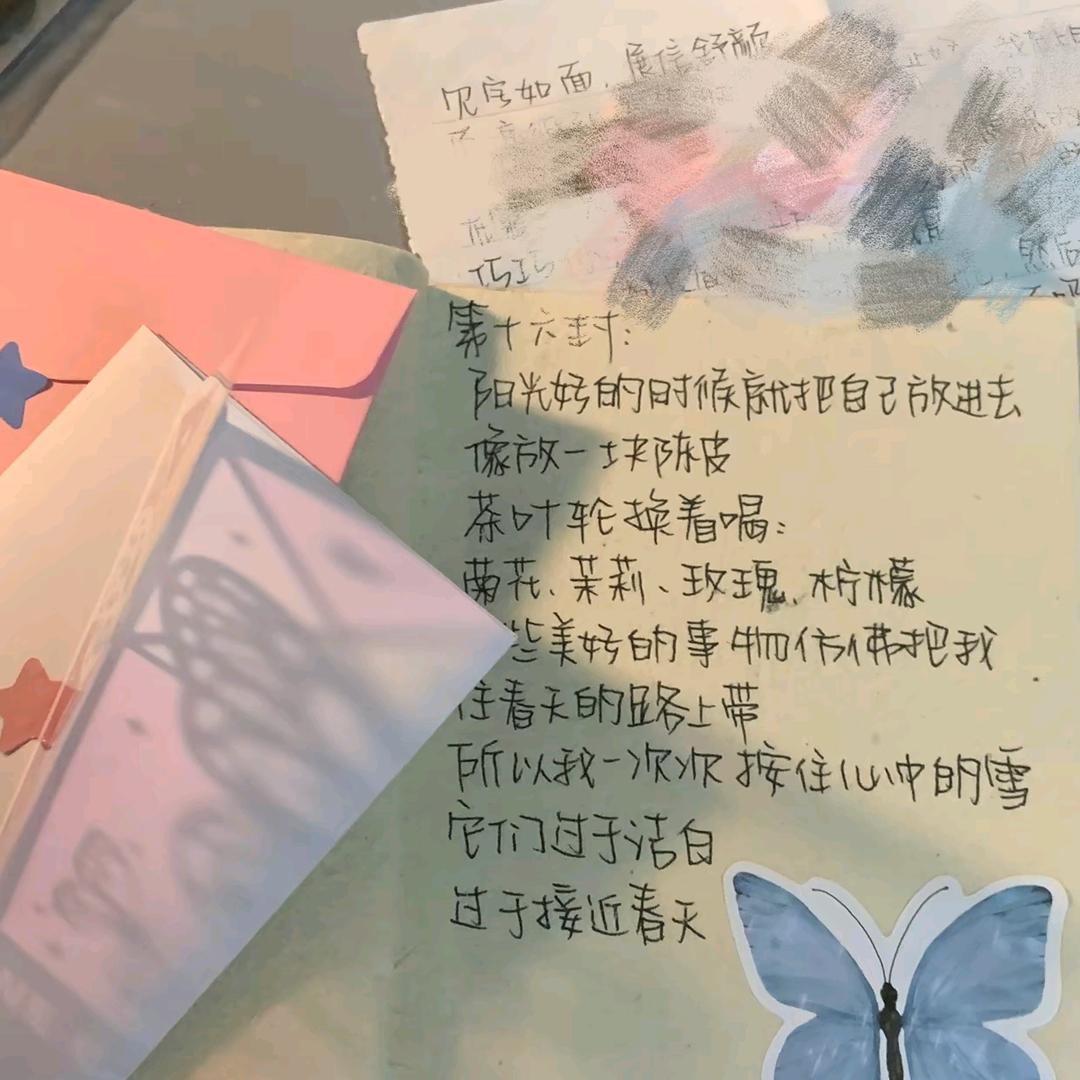 见字如面，展信舒颜
第十六封：
阳光好的时候就把自己放进去
像放一块陈皮
茶叶轮换着喝：
菊花、茉莉、玫瑰、柠檬
些美好的事物仿佛把我
往春天的路上带
所以我一次次按住心中的雪
它们过于洁白
过于接近春天